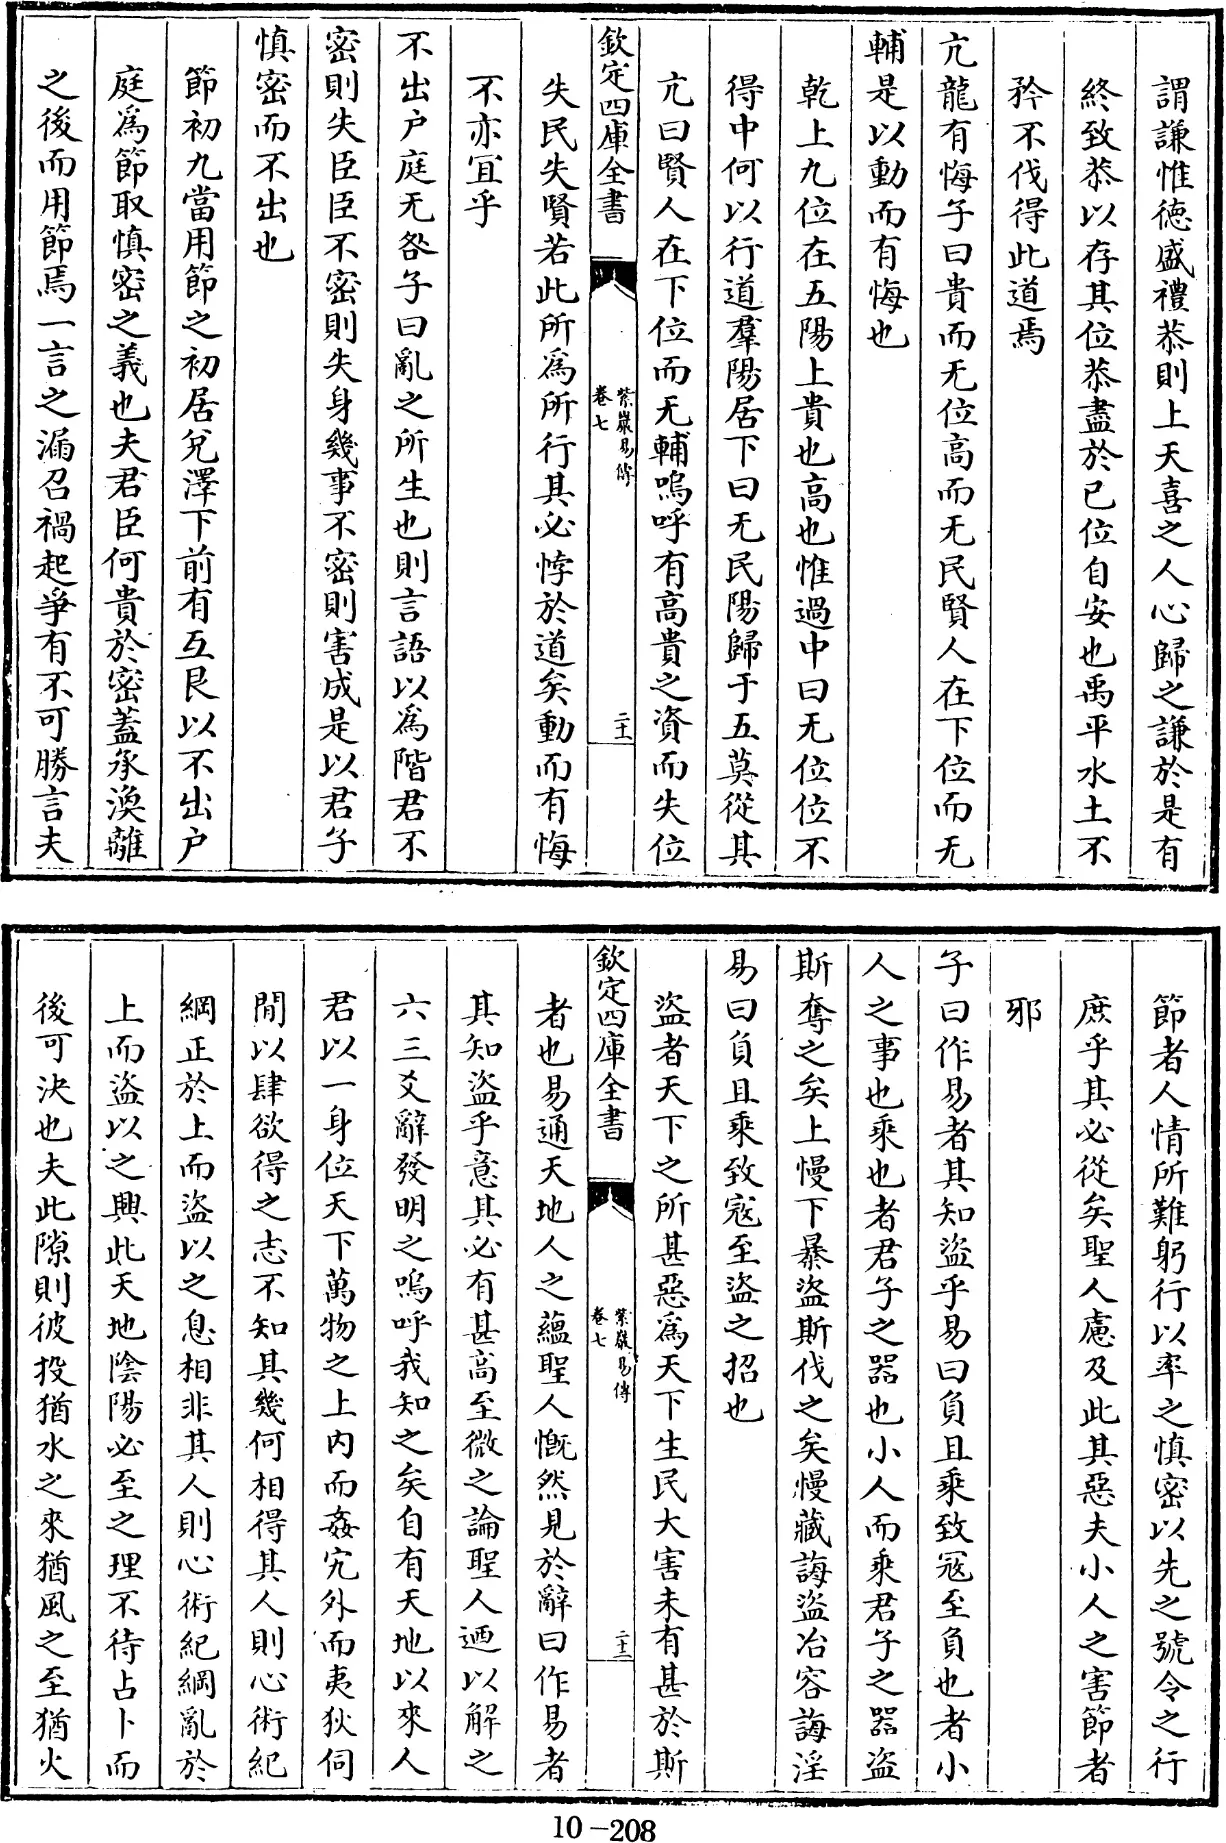 謂謙惟徳盛禮恭則上天喜之人心歸之謙於是有
終致恭以存其位恭盡於已位自安也禹平水土不
矜不伐得此道焉
亢龍有悔子曰貴而无位高而无民賢人在下位而无
輔是以動而有悔也
乾上九位在五陽上貴也高也惟過中曰无位位不
得中何以行道羣陽居下曰无民陽歸于五莫從其
亢曰賢人在下位而无輔嗚呼有高貴之資而失位
欽定四庫全書
紫巖易傳
卷七
二十一
失民失賢若此所爲所行其必悖於道矣動而有悔
不亦宜乎
不出户庭无咎子曰亂之所生也則言語以爲階君不
密則失臣臣不密則失身幾事不密則害成是以君子
慎密而不出也
節初九當用節之初居兌澤下前有互艮以不出户
庭爲節取慎密之義也夫君臣何貴於密蓋承渙離
之後而用節焉一言之漏召禍起爭有不可勝言夫
節者人情所難躬行以率之慎密以先之號令之行
庶乎其必從矣聖人慮及此其惡夫小人之害節者
邪
子曰作易者其知盜乎易曰負且乘致冦至負也者小
人之事也乘也者君子之器也小人而乘君子之器盜
斯奪之矣上慢下暴盜斯伐之矣慢藏誨盜冶容誨淫
易曰負且乘致寇至盜之招也
盜者天下之所甚惡爲天下生民大害未有甚於斯
欽定四庫全書
紫巖易傳
卷七
二十二
者也易通天地人之蘊聖人慨然見於辭曰作易者
其知盜乎意其必有甚高至微之論聖人迺以解之
六三爻辭發明之嗚呼我知之矣自有天地以來人
君以一身位天下萬物之上内而姦宄外而夷狄伺
間以肆欲得之志不知其幾何相得其人則心術紀
綱正於上而盜以之息相非其人則心術紀綱亂於
上而盜以之興此天地陰陽必至之理不待占卜而
後可決也夫此隙則彼投猶水之來猶風之至猶火
10-208